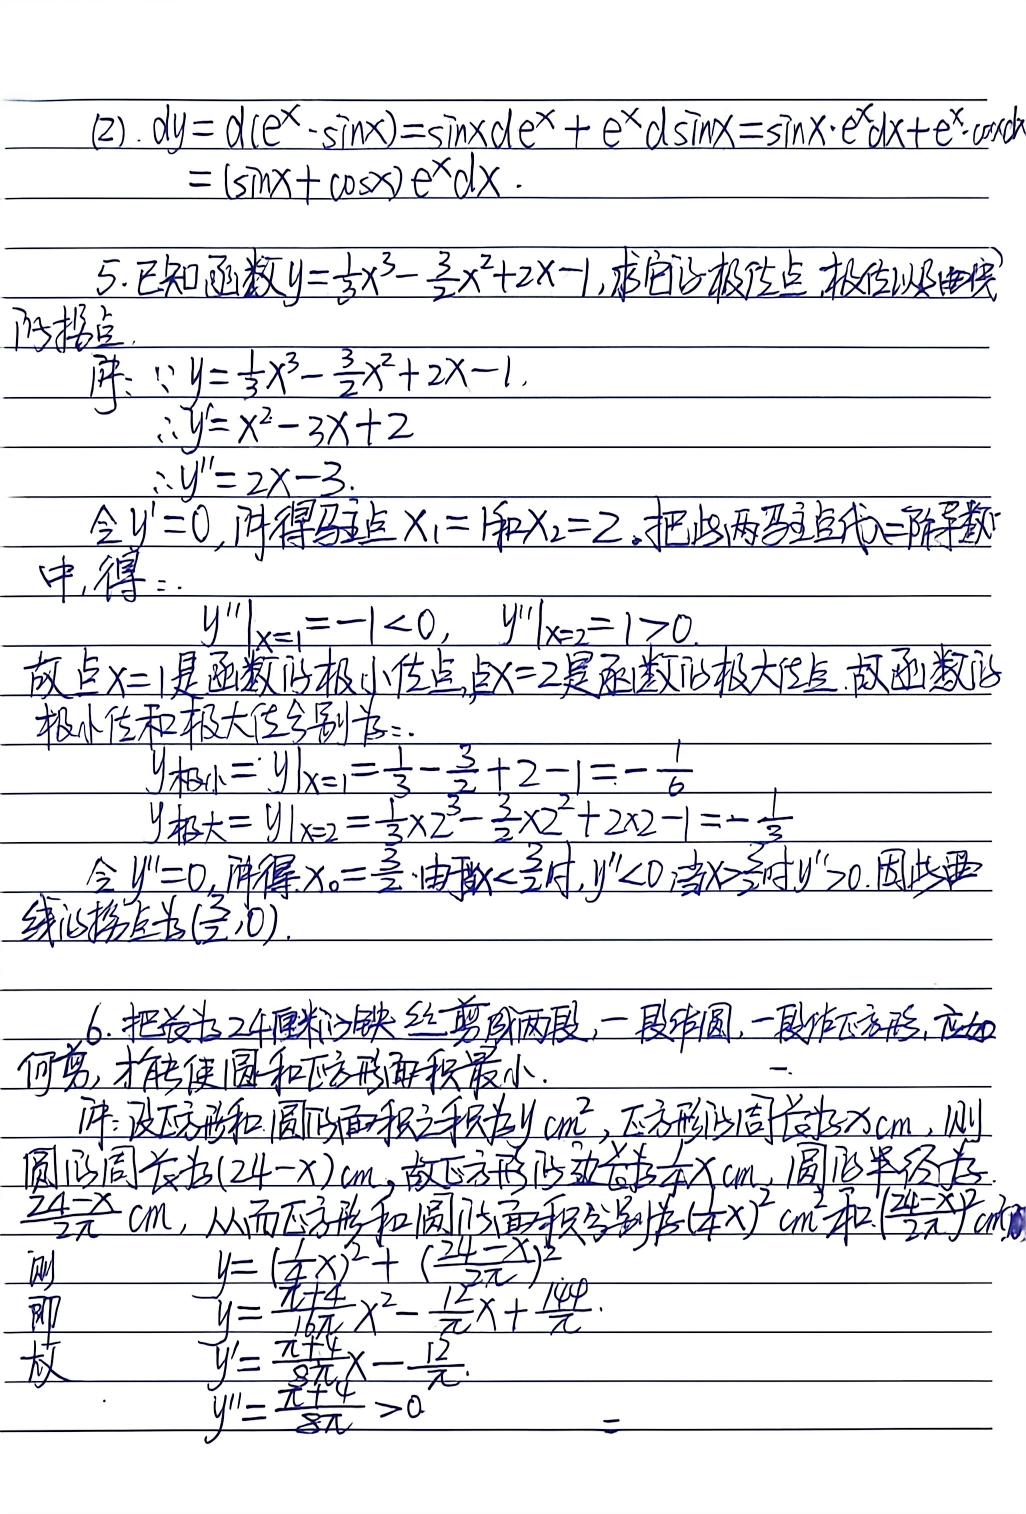 (2). dy = d(eˣ·sinx)=sinxdeˣ + eˣdsinx=sinx·eˣdx+eˣ·cosxdx
= (sinx+cosx)eˣdx.
5.已知函数y=1/3x³-3/2x²+2x-1,求它的极值点,极值以及曲线
的拐点.
解:∵y=1/3x³-3/2x²+2x-1.
∴y'=x²-3x+2
∴y''=2x-3.
令y'=0,解得驻点x₁=1和x₂=2。把此两驻点代入二阶导数
中,得:.
y''|x=1=-1<0, y''|x=2=1>0.
故点x=1是函数的极小值点,点x=2是函数的极大值点.故函数的
极小值和极大值分别为:.
y极小=y|x=1=1/3-3/2+2-1=-1/6
y极大=y|x=2=1/3×2³-3/2×2²+2×2-1=-1/3
令y''=0,解得x₀=3/2.由于当x<3/2时,y''<0;当x>3/2时y''>0.因此曲
线的拐点为(3/2,0).
6.把长为24厘米的铁丝剪成两段,一段作圆,一段作正方形,应如
何剪,才能使圆和正方形面积最小.
解:设正方形和圆的面积之积为y cm²,正方形的周长为x cm,则
圆的周长为(24-x)cm,故正方形的边长为1/4x cm,圆的半径为
24-x/2π cm,从而正方形和圆的面积分别为(1/4x)² cm²和(24-x/2π)²cm²
则 y=(1/4x)²+(24-x/2π)²
即 y=π+4/16π x²-12/π x+144/π.
故 y'=π+4/8π x-12/π.
y''=π+4/8π>0